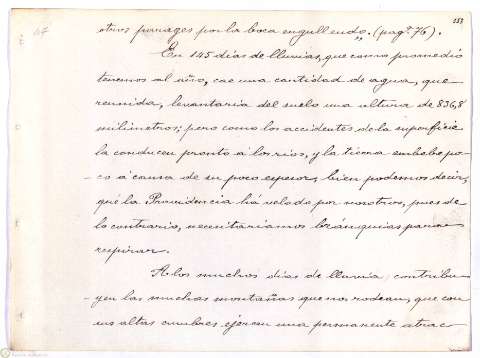 otros parages por la boca engullendo. (pagª. 76).
En 145 dias de lluvias, que como promedio
tenemos al año, cae una cantidad de agua, que
reunida, levantaria del suelo una altura de 836,8
milimetros; pero como los accidentes de la superficie
la conducen pronto á los rios, y la tierra embebe po-
co á causa de su poco espesor, bien podemos decir,
qué la Providencia há velado por nosotros, pues de
lo contrario, necesitariamos bránquias para
respirar.
A los muchos dias de lluvia contribu-
yen las muchas montañas que nos rodean, que con
sus altas cumbres ejercen una permanente atrac-